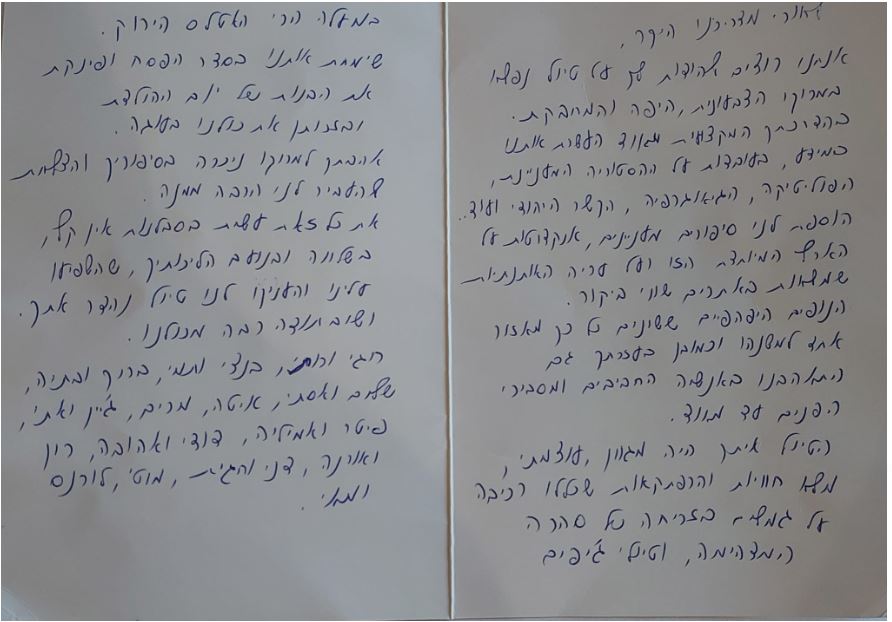 לאורי מדריכנו היקר,
אנחנו רוצים להודות לך על טיול נפלא
במרוקו הצבעונית, היפה והמחבקת.
בהדרכתך המקצועית מאוד העשרת אותנו
במידע, בעובדות על ההסטוריה המעניינת,
הפוליטיקה, הגיאוגרפיה, הקשר היהודי ועוד..
הוספת לנו סיפורים מעניינים, אנקדוטות על
הארץ המיוחדת הזו ועל עריה האותנטיות
שמלאות באתרים שווי ביקור.
הנופים היפהפיים ששינים כל כך מאזור
אחד למשנהו וכמובן בעזרתך גם
התאהבנו באנשיה החביבים ומסבירי
הפנים עד מאוד.
הטיול איתך היה מגוון, עוצמתי,
מלא חוויות והרפתקאות שכללו רכיבה
על גמלים בזריחה של סהרה
המדהימה, וטיולי ג'יפים
במעלה הרי האטלס הירוק.
שימחת אותנו בסדר הפסח ופינקת
את הבנות של יום ההולדת
ובזכותן את כולנו בעוגה.
אהבתך למרוקו ניכרה בסיפוריך והצלחת
להעביר לנו הרבה ממנה.
את כל זאת עשית בסבלנות אין קץ,
בשלווה ובנועם הליכותיך, שהשפיעו
עלינו והעניקו לנו טיול נהדר אתך.
ושוב תודה רבה מכולנו.
חגי ורותי, בנצי ותמי, ברוך ובתיה,
שלום ואסתי, איטה, מרים, ג'יין ואתי,
פיטר ואמיליה, דודי ואהובה, רון
ואורנה, דני וחגית, מוטי, לורנס